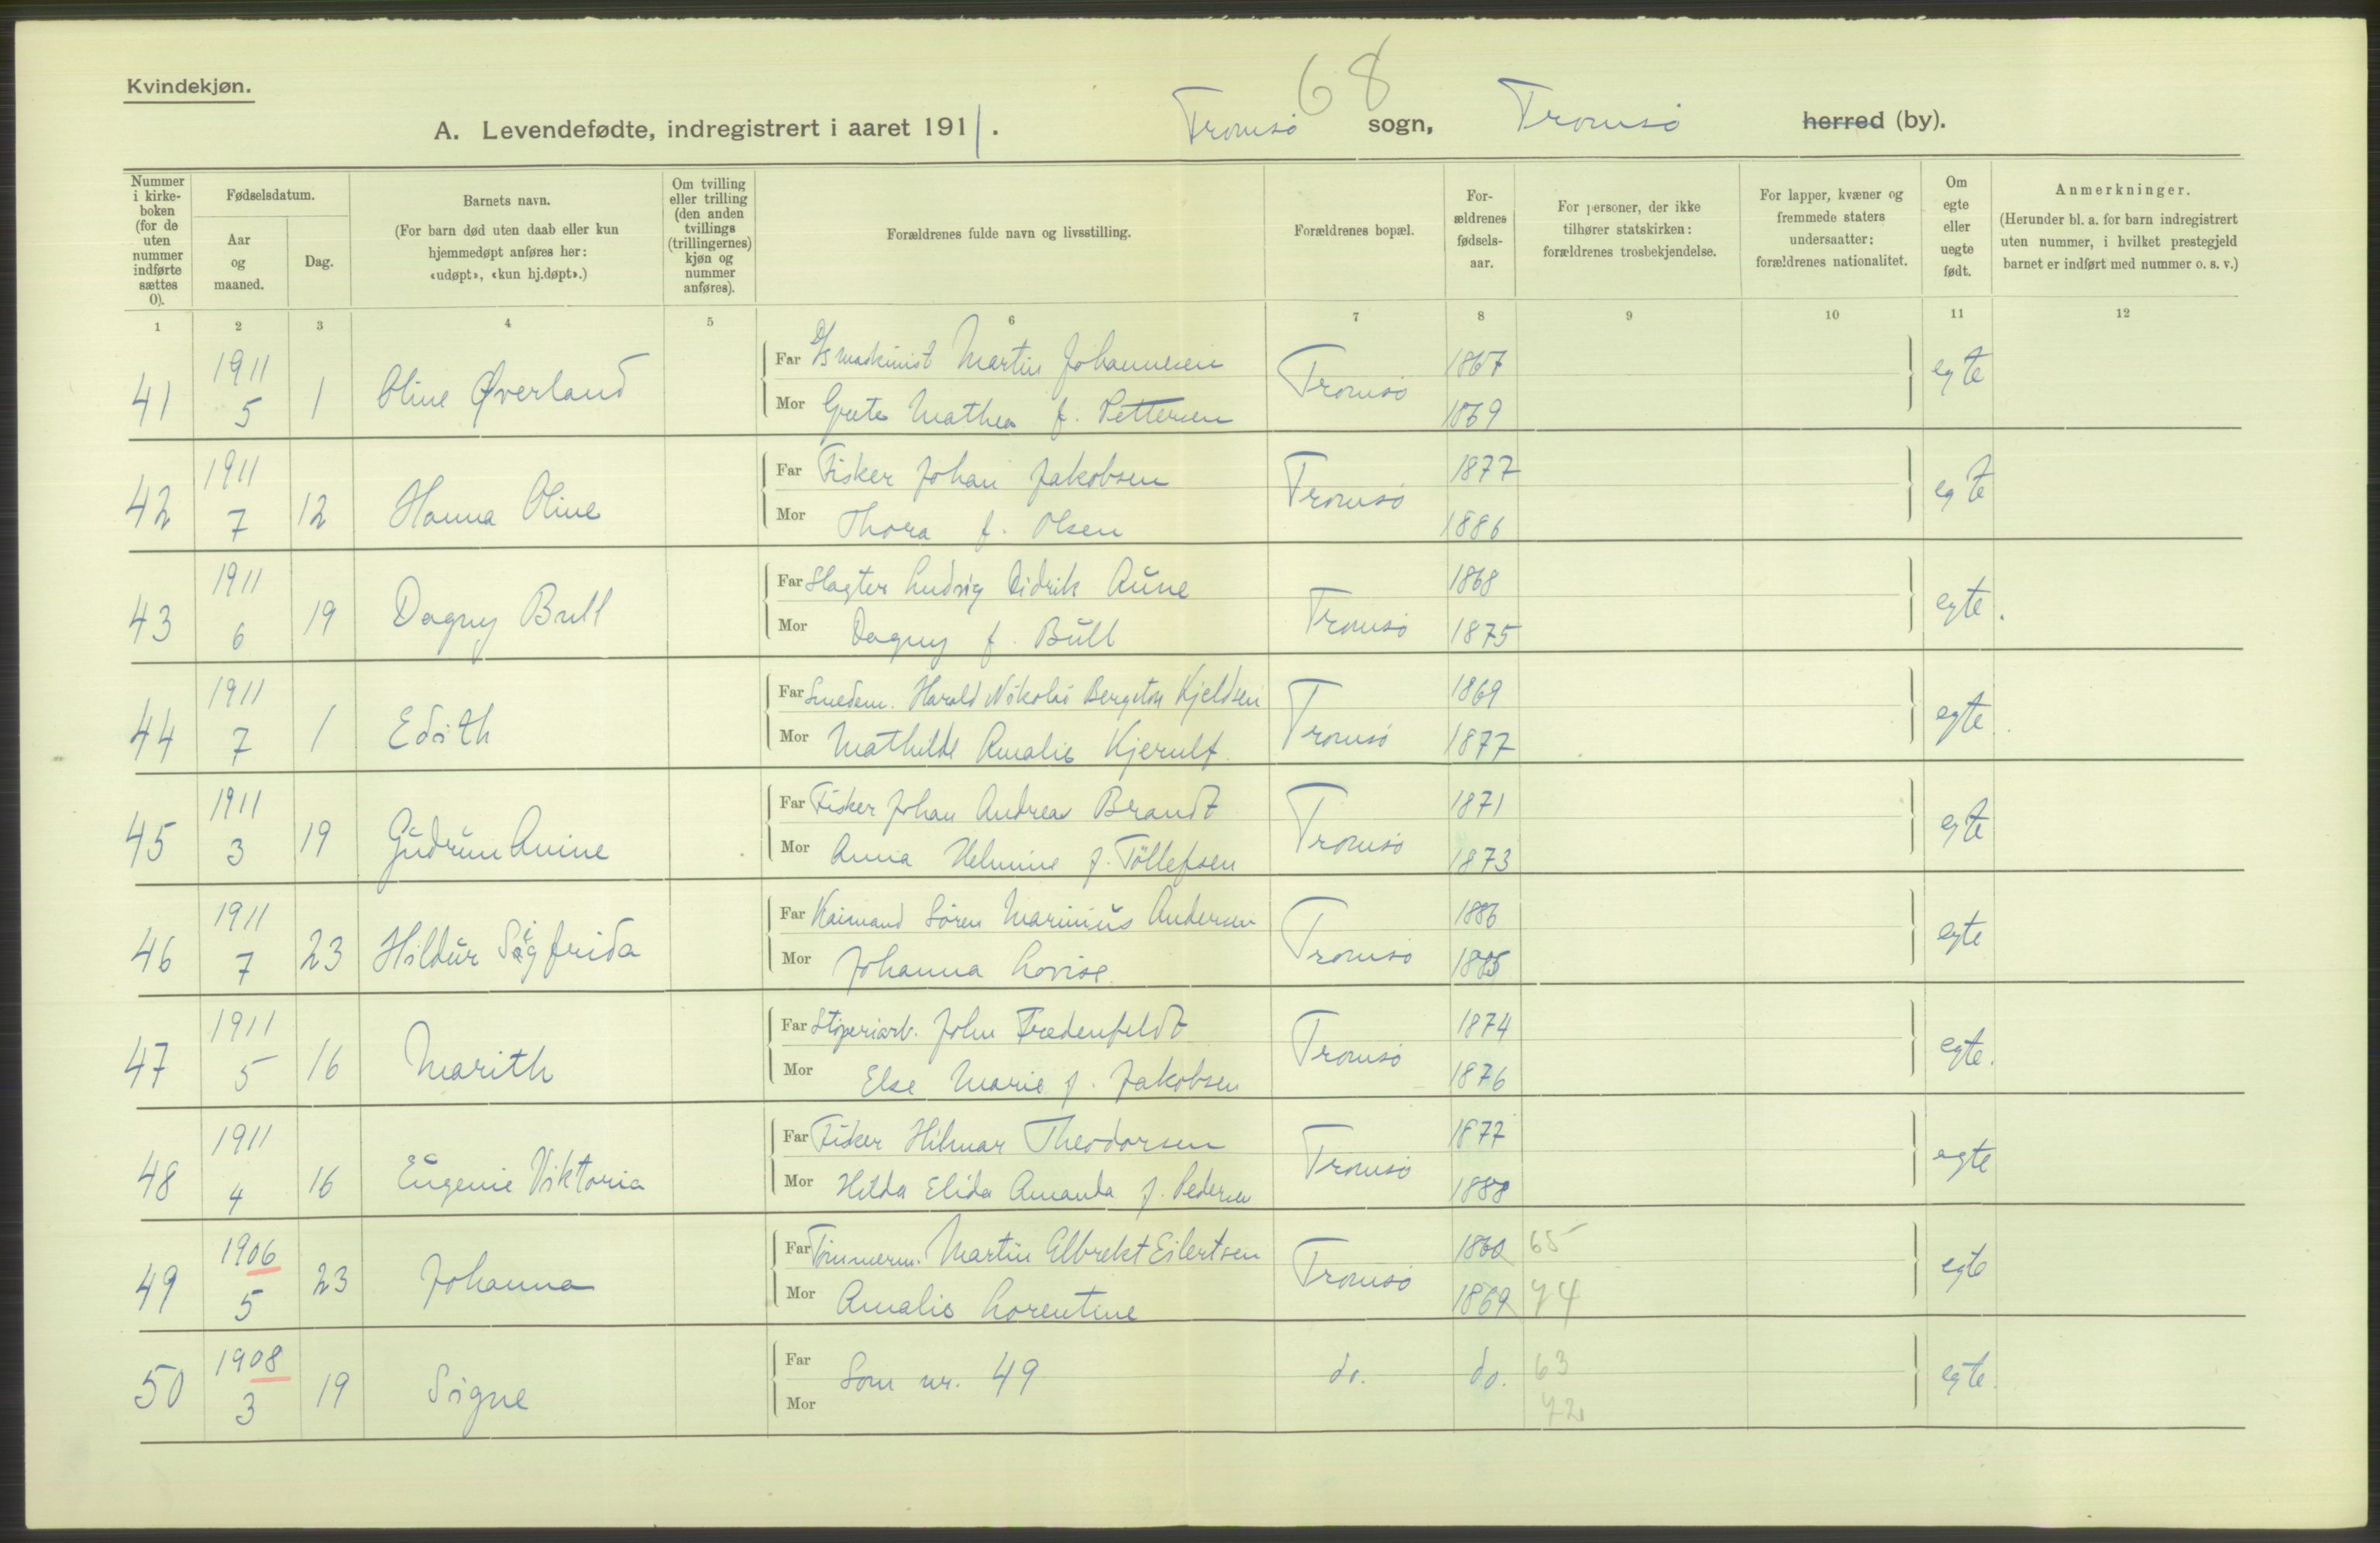 68
Kvindekjøn.
A. Levendefødte, indregistrert i aaret 1911. Tromsø sogn, Tromsø herred (by).
Nummer i kirke-boken (for de uten nummer indførte sættes 0).
Fødselsdatum.
Aar og maaned.
Dag.
Barnets navn.
(For barn død uten daab eller kun hjemmedøpt anføres her: «udøpt», «kun hj.døpt».)
Om tvilling eller trilling (den anden tvillings (trillingernes) kjøn og nummer anføres).
Forældrenes fulde navn og livsstilling.
Forældrenes bopæl.
For-ældrenes fødsels-aar.
For personer, der ikke tilhører statskirken: forældrenes trosbekjendelse.
For lapper, kvæner og fremmede staters undersaatter: forældrenes nationalitet.
Om egte eller uegte født.
Anmerkninger.
(Herunder bl. a. for barn indregistrert uten nummer, i hvilket prestegjeld barnet er indført med nummer o. s. v.)
1 2 3 4 5 6 7 8 9 10 11 12
41 1911 5 1 Oline Øverland Far D/S maskinist Martin Johannesen Tromsø 1867 egte
Mor Grete Mathea f. Pettersen 1869
42 1911 7 12 Hanna Oline Far Fisker Johan Jakobsen Tromsø 1877 egte
Mor Thora f. Olsen 1886
43 1911 6 19 Dagny Bull Far Slagter Ludvig Didrik Aune Tromsø 1868 egte.
Mor Dagny f. Bull 1875
44 1911 7 1 Edith Far Smedem. Harald Nikolai Bergeton Kjeldsen Tromsø 1869 egte
Mor Mathilde Amalie Kjerulf 1877
45 1911 3 19 Gudrun Anine Far Fisker Johan Andreas Brandt Tromsø 1871 egte
Mor Anna Helmine f. Töllefsen 1873
46 1911 7 23 Hildur Sigfrida Far Kaimand Sören Marinius Andersen Tromsø 1886 egte
Mor Johanna Lovise 1885
47 1911 5 16 Marith Far Støperiarb. John Fredenfeldt Tromsø 1874 egte.
Mor Else Marie f. Jakobsen 1876
48 1911 4 16 Eugenie Viktoria Far Fisker Hilmar Theodorsen Tromsø 1877 egte
Mor Hilda Elida Amanda f. Pedersen 1888
49 1906 5 23 Johanna Far Tømmerm. Martin Albrekt Eilertsen Tromsø 1860 65 egte
Mor Amalie Lorentine 1869 74
50 1908 3 19 Signe Far Som nr. 49 do. do. 63 egte.
Mor 72